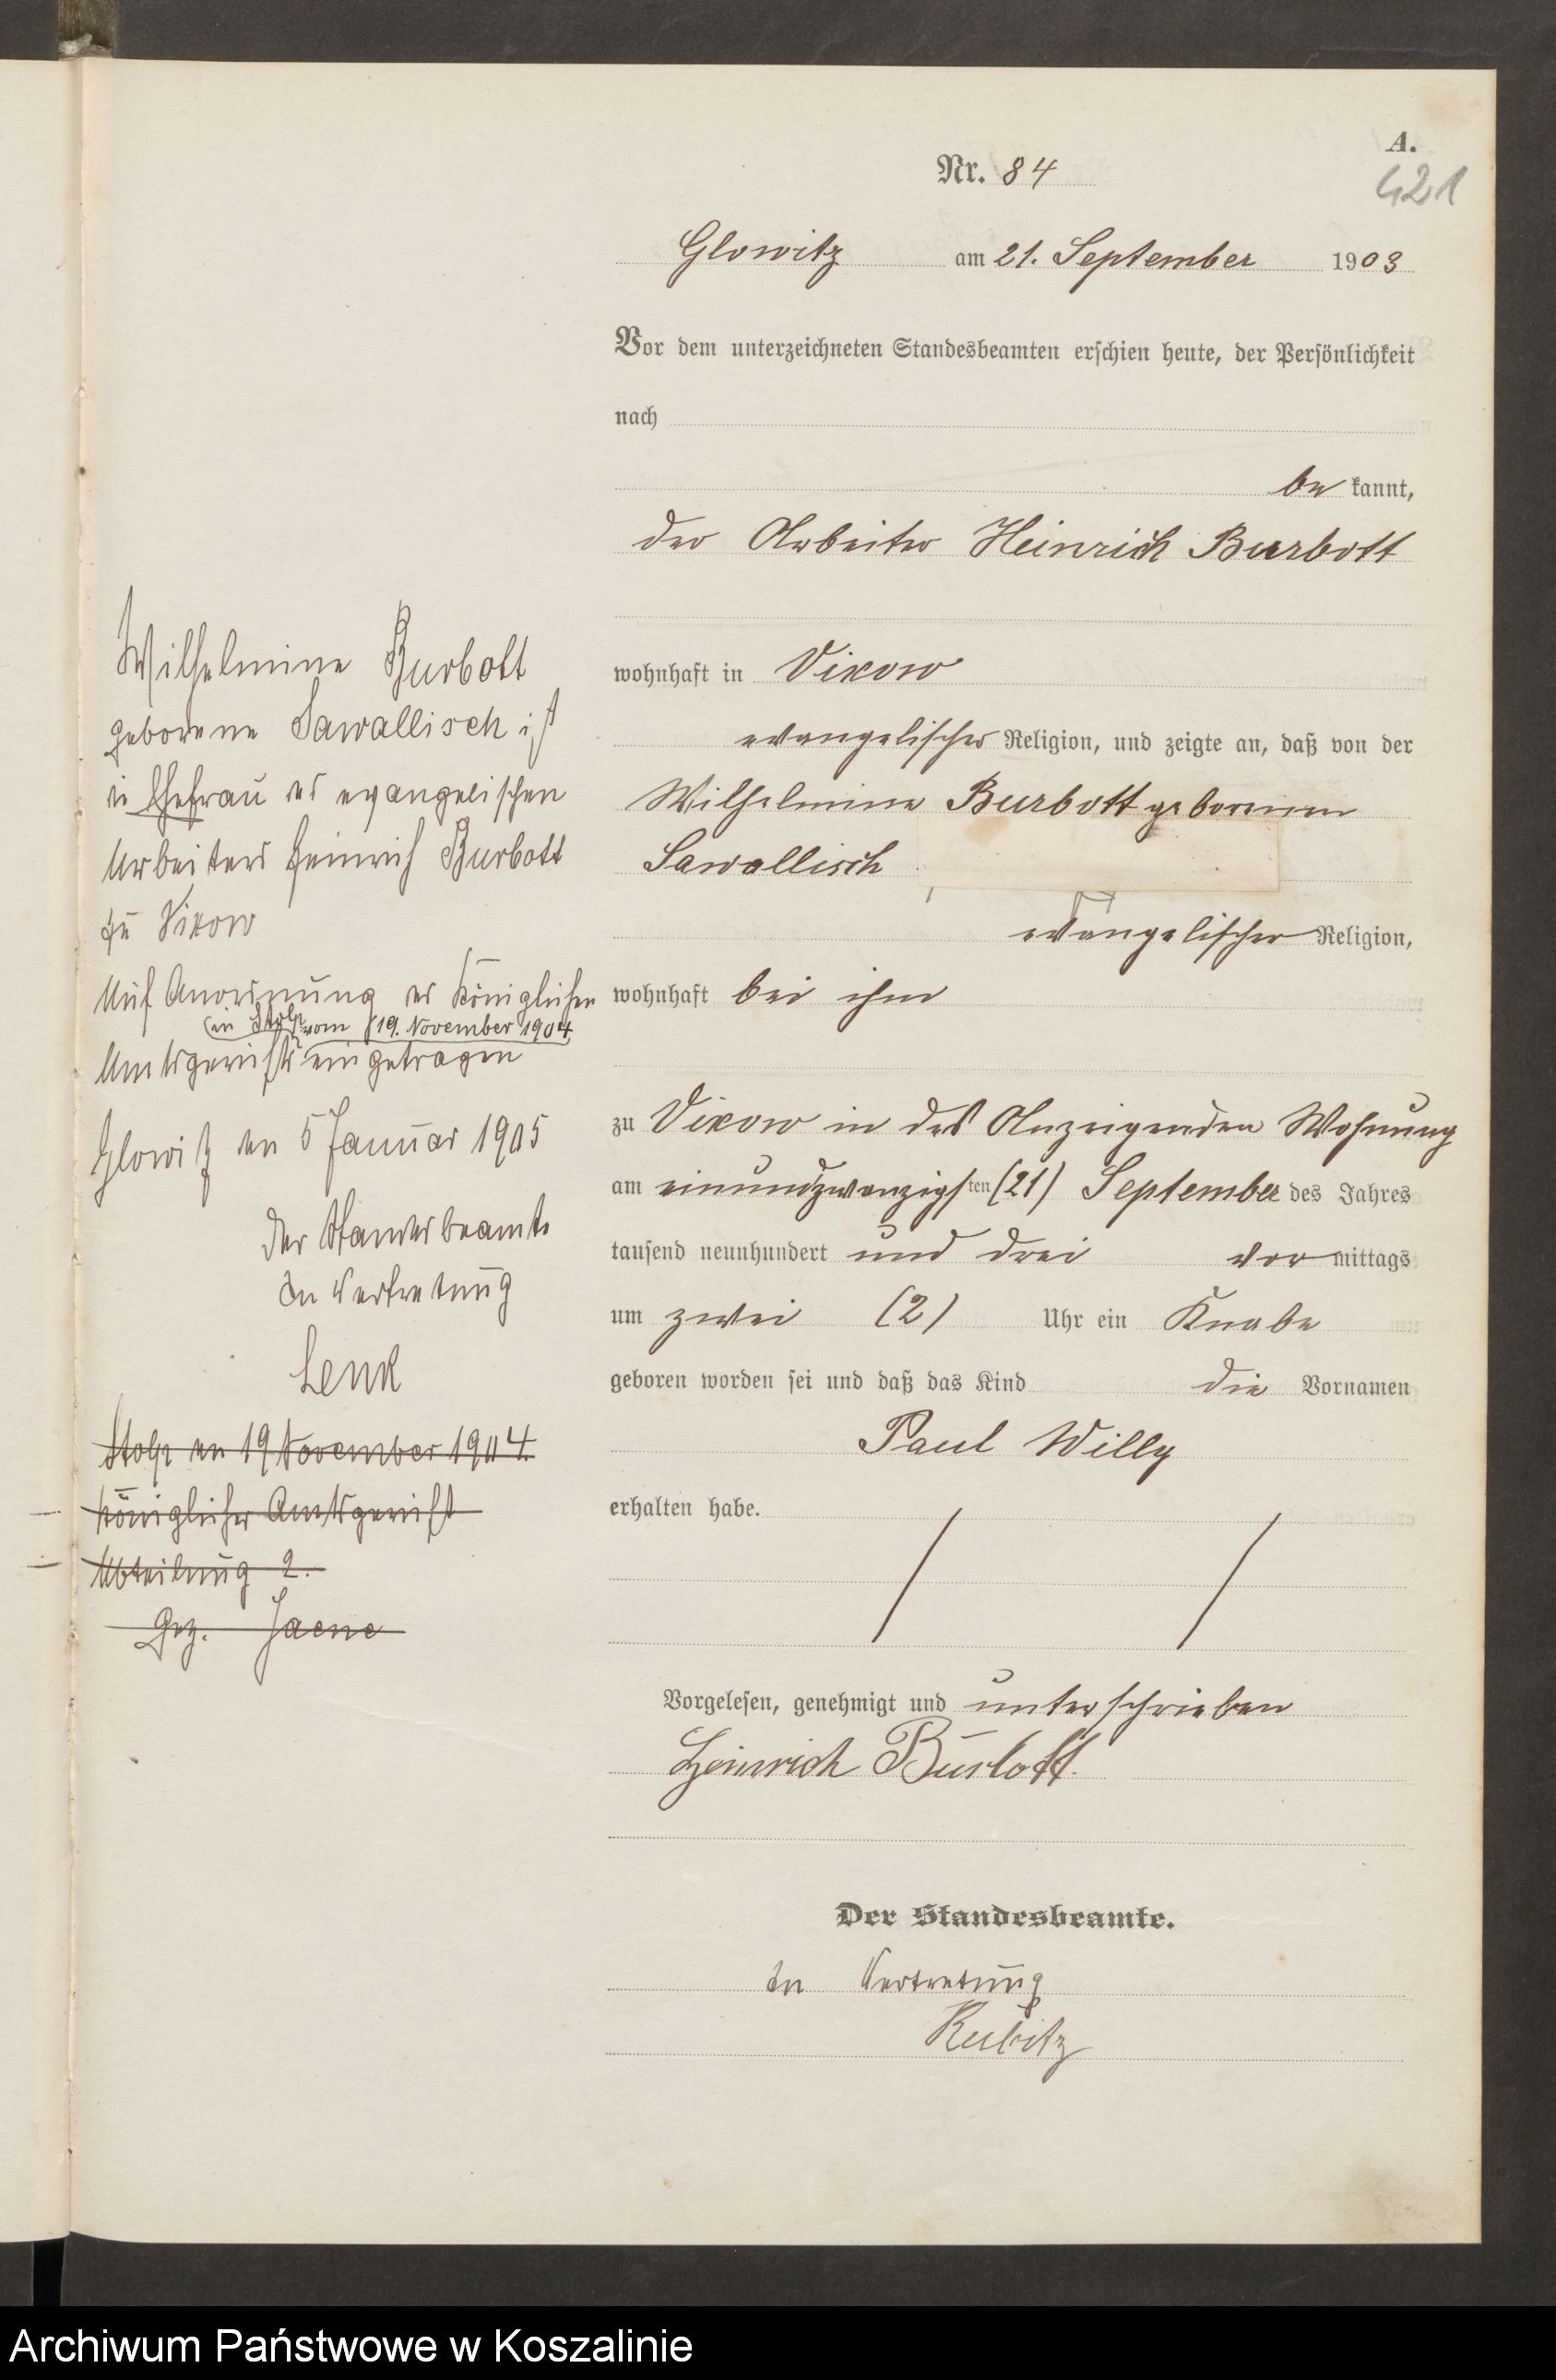 A.
421
Nr. 84
Glowitz am 21. September 1903
Vor dem unterzeichneten Standesbeamten erschien heute, der Persönlichkeit
nach
be kannt,
der Arbeiter Heinrich Burbott
wohnhaft in Vixow
evangelischer Religion, und zeigte an, daß von der
Wilhelmine Burbott geborenen
Sawallisch
evangelischer Religion,
wohnhaft bei ihm
zu Vixow in des Anzeigenden Wohnung
am einundzwanzigsten (21) September des Jahres
tausend neunhundert und drei vor mittags
um zwei (2) Uhr ein Knabe
geboren worden sei und daß das Kind die Vornamen
Paul Willy
erhalten habe.
Vorgelesen, genehmigt und unterschrieben
Heinrich Burbott.
Der Standesbeamte.
In Vertretung
Kubitz
Wilhelmine Burbott
geborene Sawallisch ist
die Ehefrau des evangelischen
Arbeiters Heinrich Burbott
zu Vixow
Auf Anordnung des Königlichen
in Stolp vom 19. November 1904
Amtsgerichts eingetragen
Glowitz den 5 Januar 1905
Der Standesbeamte
In Vertretung
Lenk
Stolp den 19 November 1904.
Königliches Amtsgericht
Abteilung 2.
Gez. Jaene
Archiwum Państwowe w Koszalinie